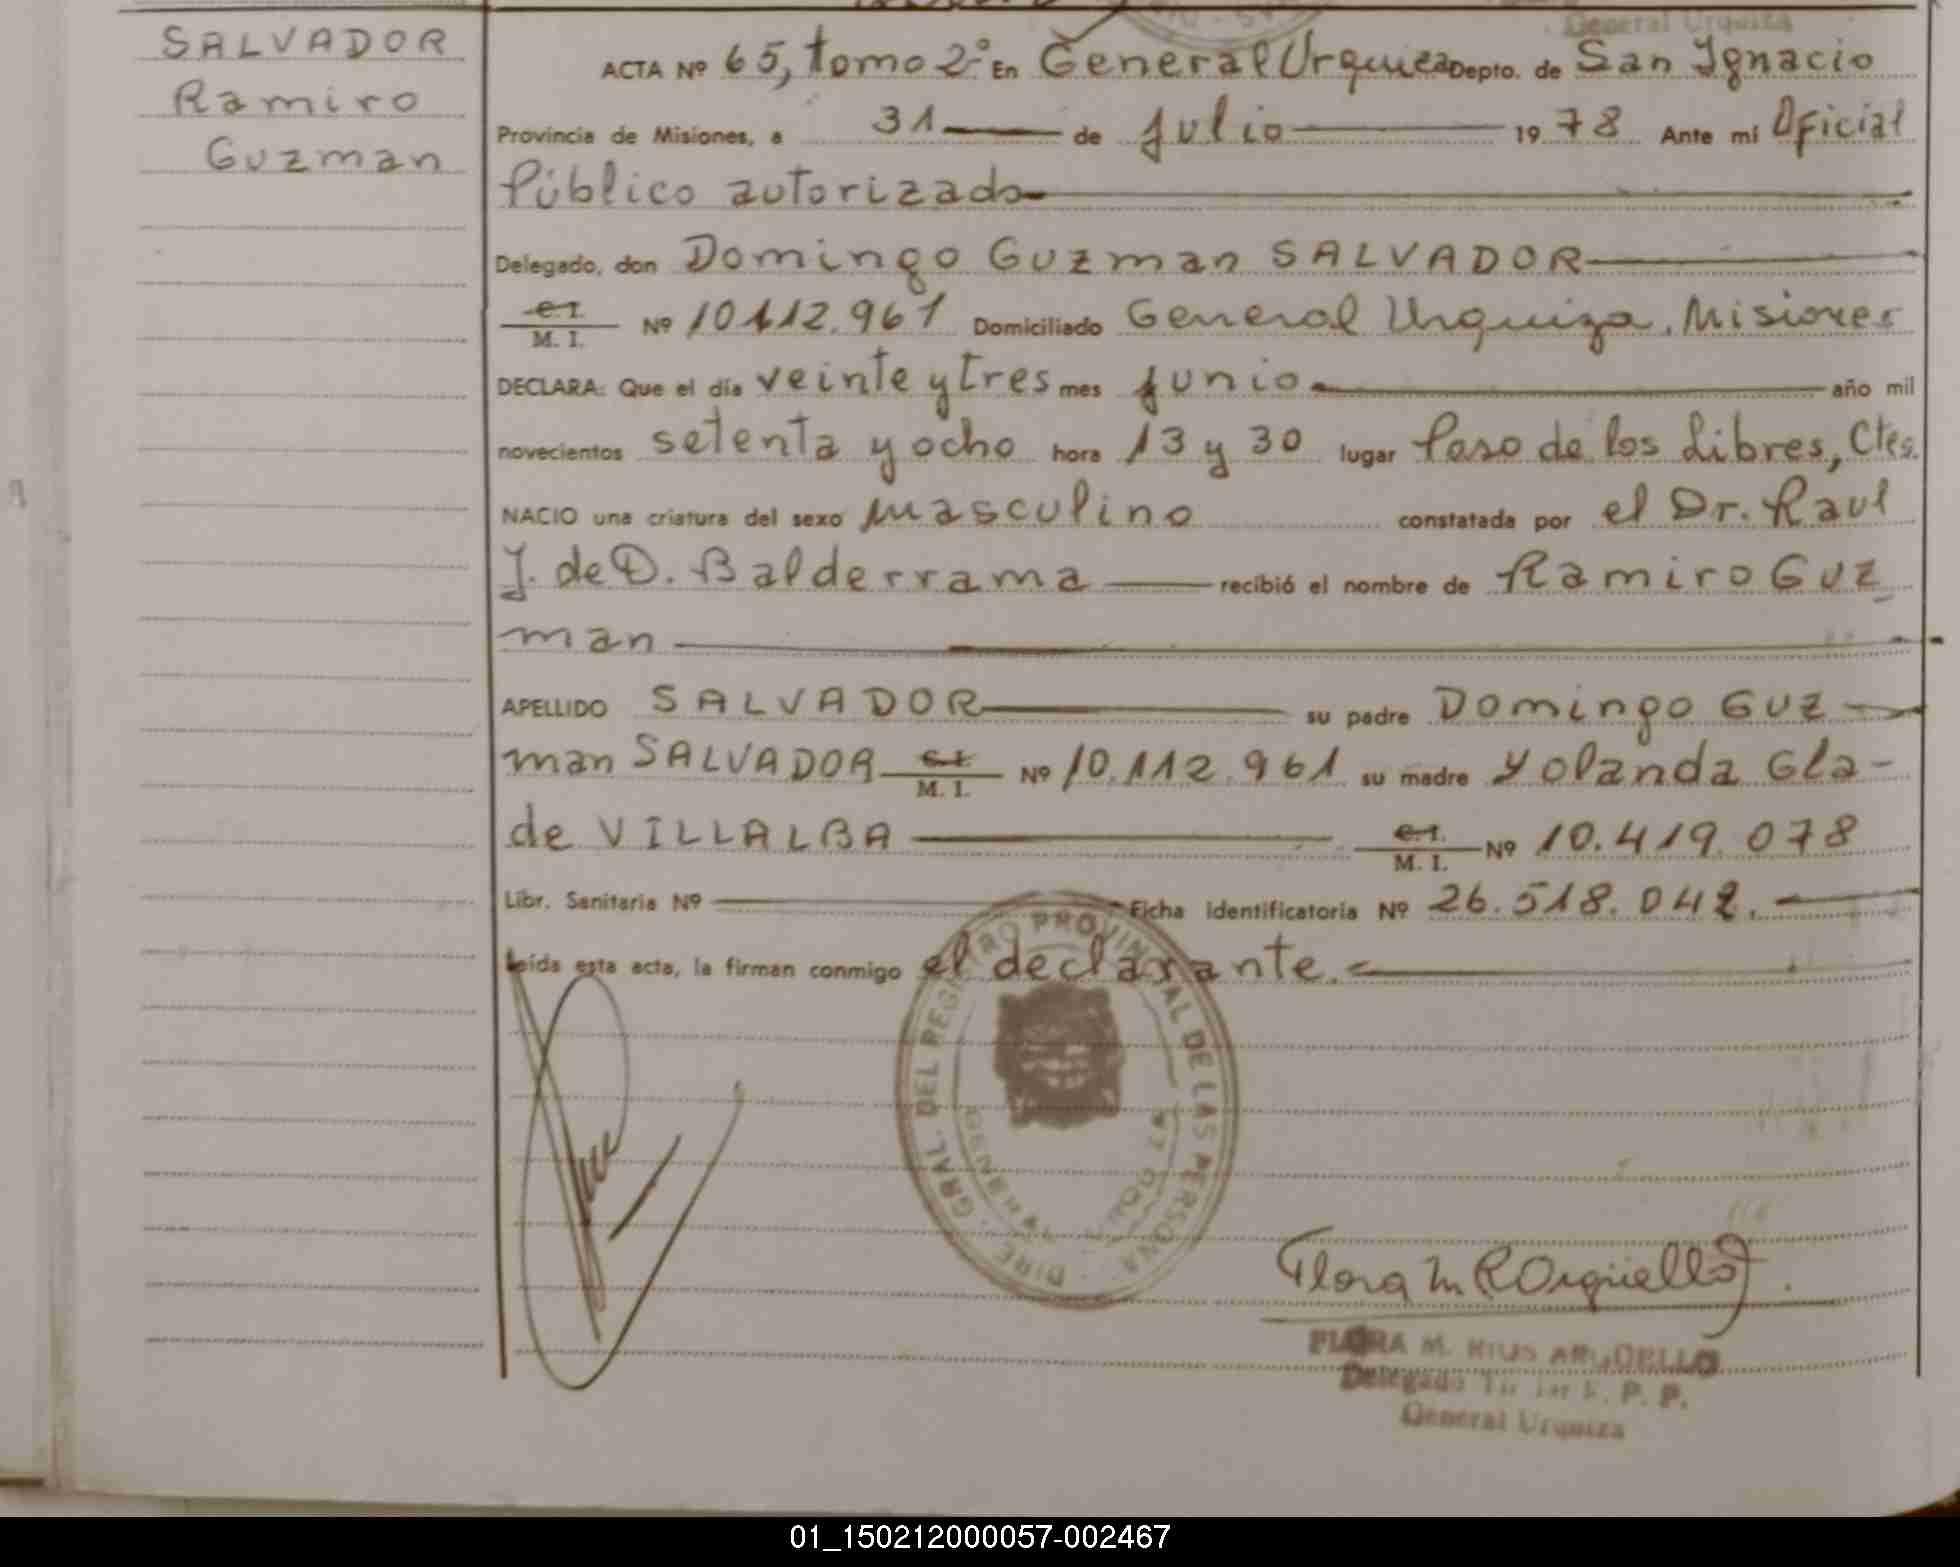 General Urquiza
SALVADOR
Ramiro
Guzman
ACTA Nº 65, tomo 2º En General Urquiza Depto. de San Ignacio
Provincia de Misiones, a 31 de Julio 1978 Ante mí Oficial
Público autorizado
Delegado, don Domingo Guzman SALVADOR
C.I.
M. I. Nº 10.112.961 Domiciliado General Urquiza, Misiones
DECLARA: Que el día veinte y tres mes Junio año mil
novecientos setenta y ocho hora 13 y 30 lugar Paso de los Libres, Ctes.
NACIO una criatura del sexo masculino constatada por el Dr. Raul
J. de D. Balderrama recibió el nombre de Ramiro Guz
man
APELLIDO SALVADOR su padre Domingo Guz
man SALVADOR C.I.
M. I. Nº 10.112.961 su madre Yolanda Gla-
de VILLALBA C.I.
M. I. Nº 10.419.078
Libr. Sanitaria Nº Ficha identificatoria Nº 26.518.042.
Leída esta acta, la firman conmigo el declarante.
DIRE. GRAL. DEL REGISTRO PROVINCIAL DE LAS PERSONA
Flora M R Argüello
FLORA M. RIUS ARGUELLO
Delegado P. P.
General Urquiza
01_150212000057-002467